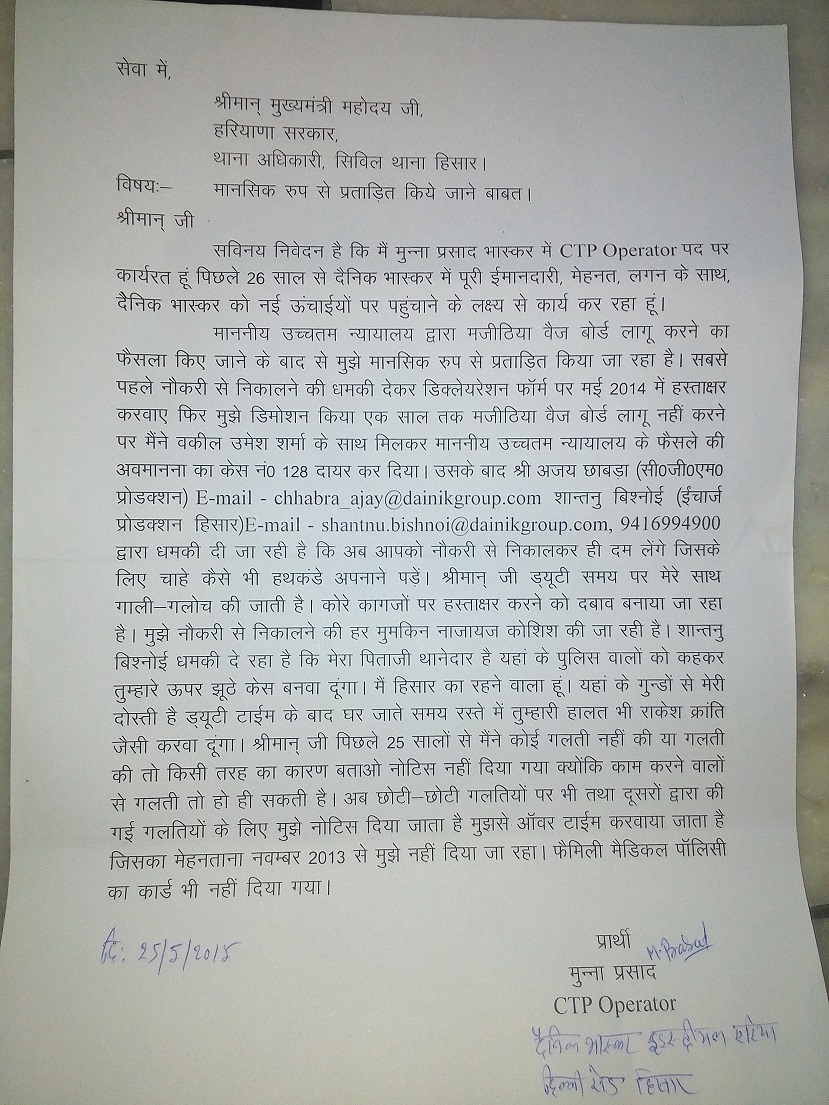 सेवा में,
श्रीमान् मुख्यमंत्री महोदय जी,
हरियाणा सरकार,
थाना अधिकारी, सिविल थाना हिसार।
विषयः– मानसिक रुप से प्रताड़ित किये जाने बाबत।
श्रीमान् जी
सविनय निवेदन है कि मैं मुन्ना प्रसाद भास्कर में CTP Operator पद पर
कार्यरत हूं पिछले 26 साल से दैनिक भास्कर में पूरी ईमानदारी, मेहनत, लगन के साथ,
दैनिक भास्कर को नई ऊंचाईयों पर पहुंचाने के लक्ष्य से कार्य कर रहा हूं।
माननीय उच्चतम न्यायालय द्वारा मजीठिया वैज बोर्ड लागू करने का
फैसला किए जाने के बाद से मुझे मानसिक रुप से प्रताड़ित किया जा रहा है। सबसे
पहले नौकरी से निकालने की धमकी देकर डिक्लेयरेशन फॉर्म पर मई 2014 में हस्ताक्षर
करवाए फिर मुझे डिमोशन किया एक साल तक मजीठिया वैज बोर्ड लागू नहीं करने
पर मैंने वकील उमेश शर्मा के साथ मिलकर माननीय उच्चतम न्यायालय के फैसले की
अवमानना का केस नं0 128 दायर कर दिया। उसके बाद श्री अजय छाबड़ा (सी0जी0एम0
प्रोडक्शन) E-mail - chhabra_ajay@dainikgroup.com शान्तनु बिश्नोई (ईंचार्ज
प्रोडक्शन हिसार)E-mail - shantnu.bishnoi@dainikgroup.com, 9416994900
द्वारा धमकी दी जा रही है कि अब आपको नौकरी से निकालकर ही दम लेंगे जिसके
लिए चाहे कैसे भी हथकंडे अपनाने पड़ें। श्रीमान् जी ड्यूटी समय पर मेरे साथ
गाली–गलोच की जाती है। कोरे कागजों पर हस्ताक्षर करने को दबाव बनाया जा रहा
है। मुझे नौकरी से निकालने की हर मुमकिन नाजायज कोशिश की जा रही है। शान्तनु
बिश्नोई धमकी दे रहा है कि मेरा पिताजी थानेदार है यहां के पुलिस वालों को कहकर
तुम्हारे ऊपर झूठे केस बनवा दूंगा। मैं हिसार का रहने वाला हूं। यहां के गुन्डों से मेरी
दोस्ती है ड्यूटी टाईम के बाद घर जाते समय रस्ते में तुम्हारी हालत भी राकेश क्रांति
जैसी करवा दूंगा। श्रीमान् जी पिछले 25 सालों से मैंने कोई गलती नहीं की या गलती
की तो किसी तरह का कारण बताओ नोटिस नहीं दिया गया क्योंकि काम करने वालों
से गलती तो हो ही सकती है। अब छोटी–छोटी गलतियों पर भी तथा दूसरों द्वारा की
गई गलतियों के लिए मुझे नोटिस दिया जाता है मुझसे ऑवर टाईम करवाया जाता है
जिसका मेहनताना नवम्बर 2013 से मुझे नहीं दिया जा रहा। फैमिली मैडिकल पॉलिसी
का कार्ड भी नहीं दिया गया।
दि: 25/5/2015
प्रार्थी M. Prasad
मुन्ना प्रसाद
CTP Operator
दैनिक भास्कर इंडस्ट्रीयल एरिया
दिल्ली रोड हिसार